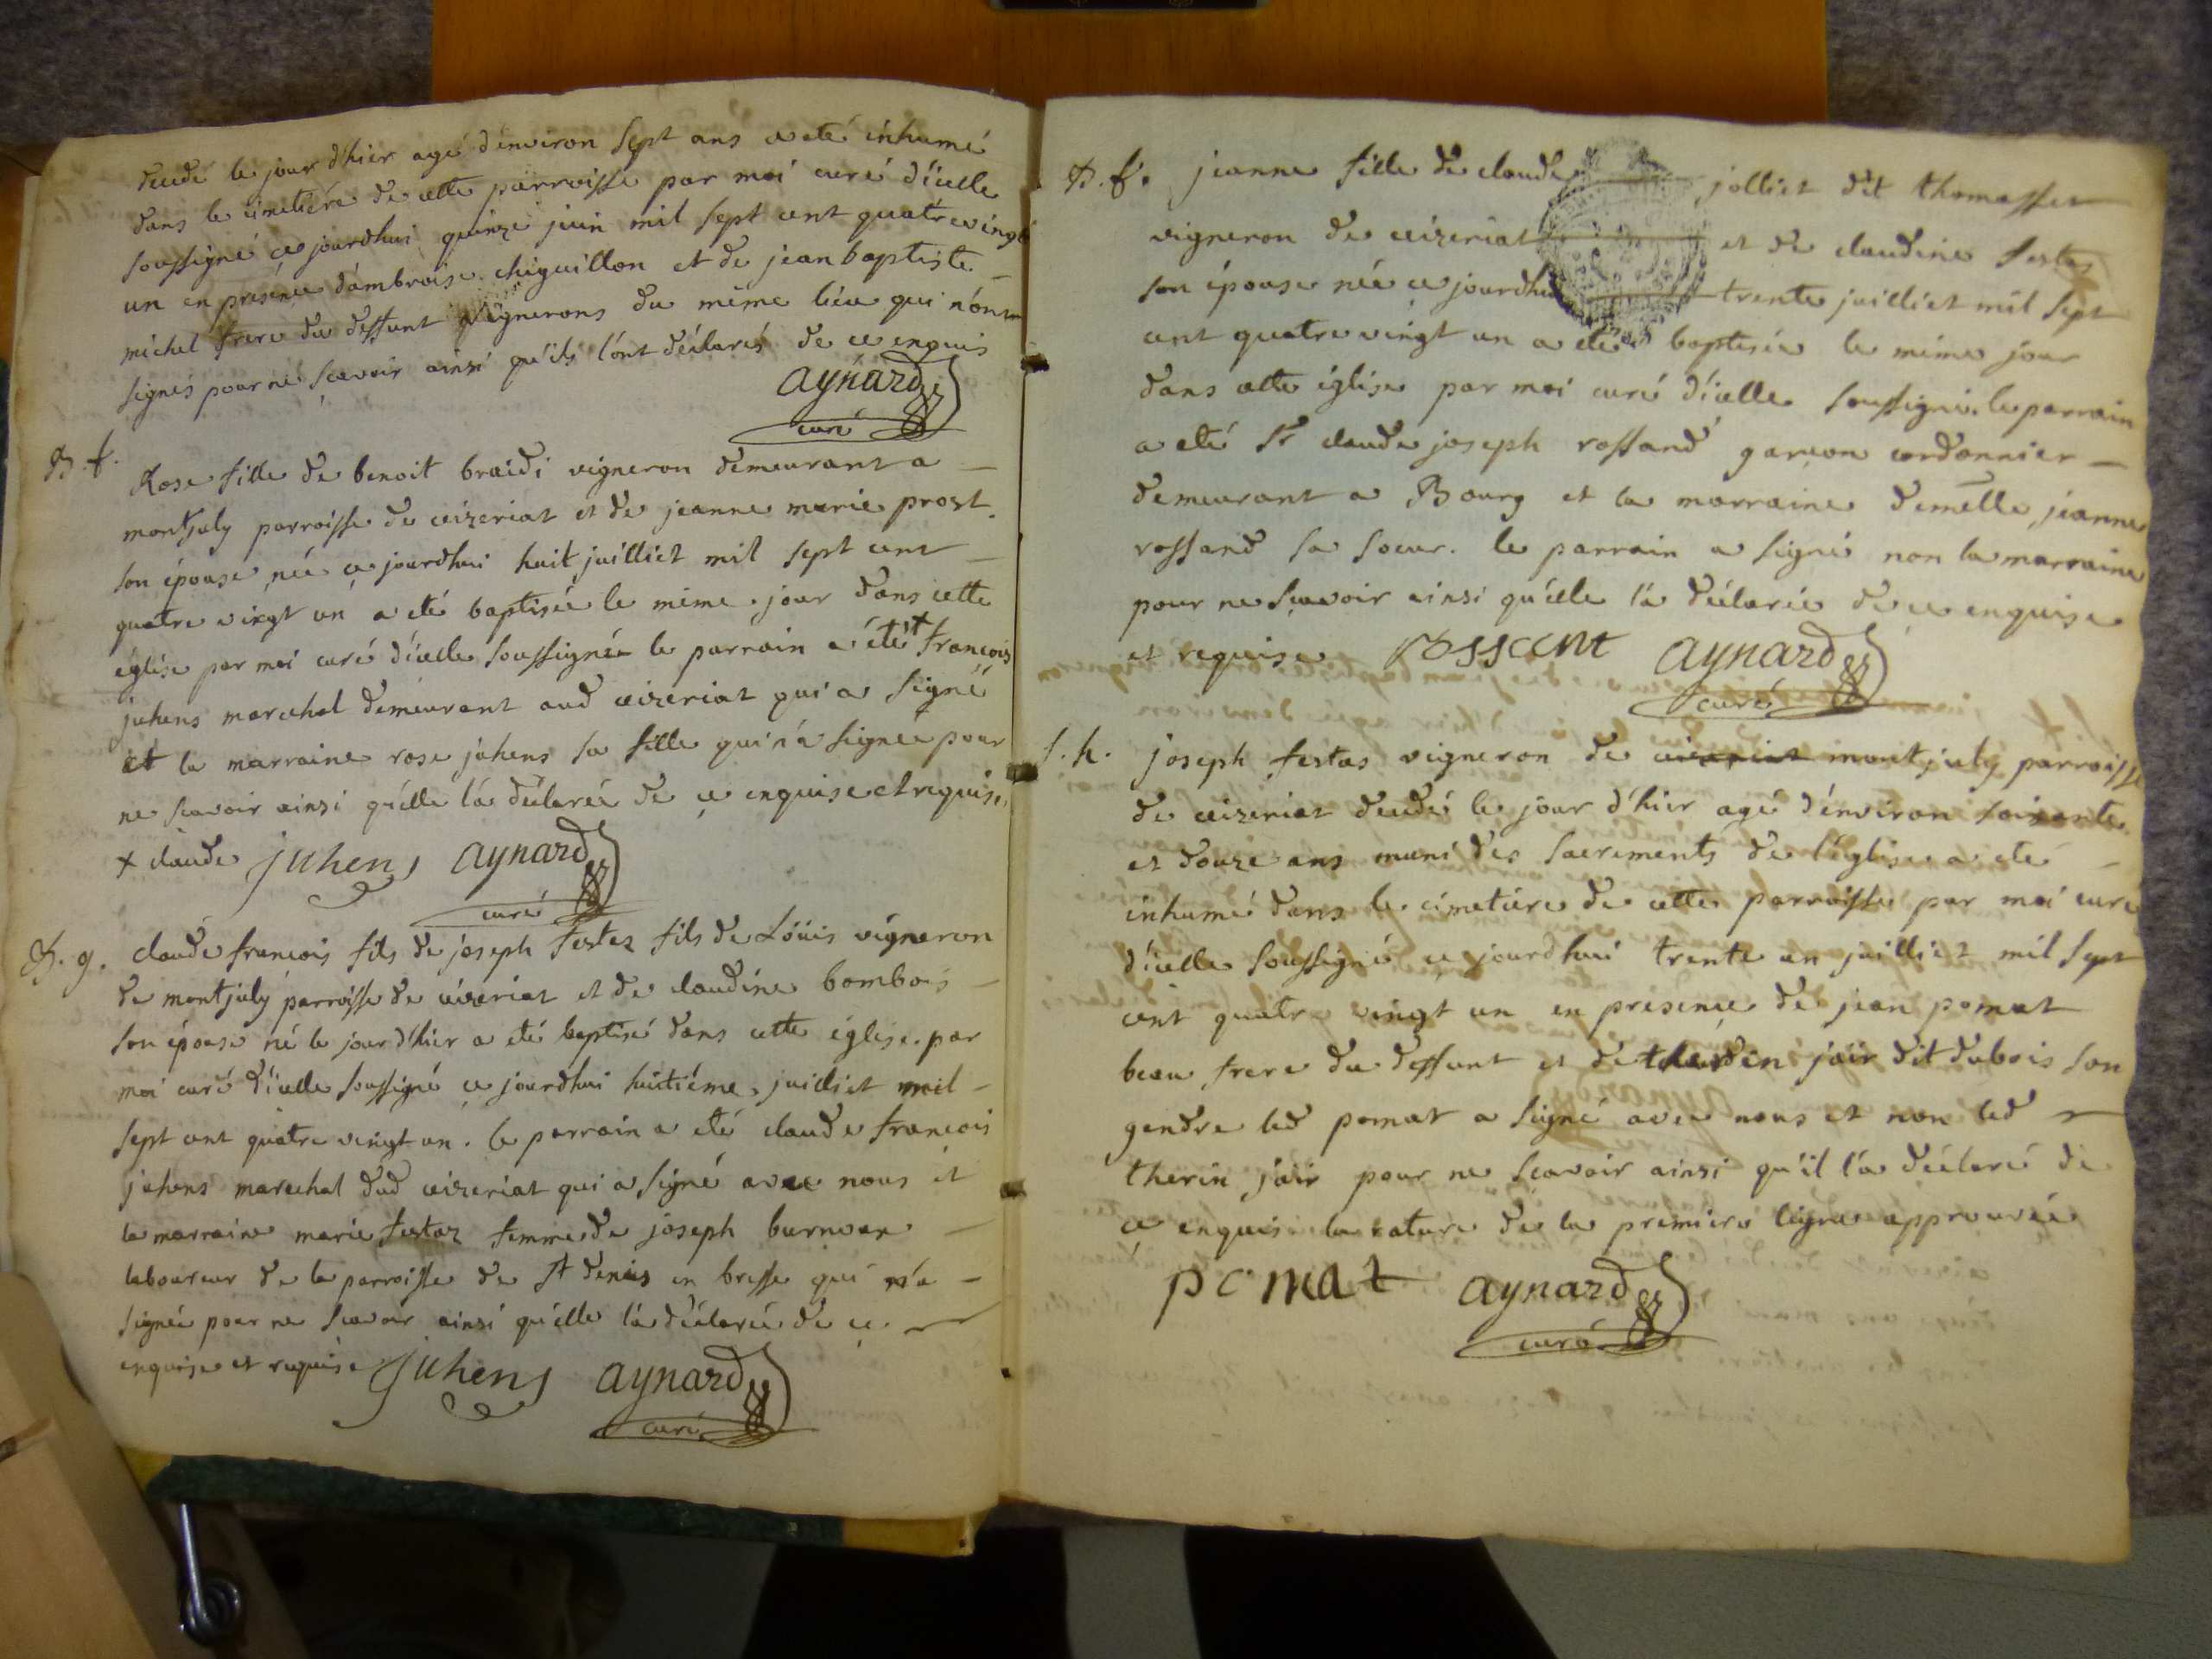 decedé le jour d'hier agé d'environ sept ans a eté inhumé
dans le cimetiére de cette parroisse par moi curé d'icelle
soussigné ce jourdhui quinze juin mil sept cent quatre vingt
un en présence d'ambroise chiquillon et de jean baptiste
michel frere du deffunt vignerons du même lieu qui n'ont
signés pour ne sçavoir ainsi qu'ils l'ont déclarés de ce enquis
aynard
curé
B. f.
Rose fille de benoit braidi vigneron demeurant a
montjuly parroisse de ceizeriat et de jeanne marie prost
son épouse née ce jourdhui huit juilliet mil sept cent
quatre vingt un a eté baptisée le même jour dans cette
église par moi curé d'icelle soussigné le parrain a été + francois
juhens marechal demeurant aud ceizeriat qui a signé
et la marraine rose juhens sa fille qui n'a signée pour
ne scavoir ainsi qu'elle l'a déclarée de ce enquise et requise
+ claude juhens aynard
curé
B. g. claude francois fils de joseph festaz fils de Loüis vigneron
de montjuly parroisse de ceizeriat et de claudine bombois
son épouse né le jour d'hier a eté baptisé dans cette église par
moi curé d'icelle soussigné ce jourdhui huitiéme juilliet mil
sept cent quatre vingt un. le parrain a eté claude francois
juhens marechal dud ceizeriat qui a signé avec nous et
la marraine marie festaz femme de joseph
laboureur de la parroisse de st denis en bresse qui n'a
signée pour ne scavoir ainsi qu'elle l'a déclarée de ce
enquise et requise juhens aynard
curé
B. f. jeanne fille de claude jolliet dit thomasset
vigneron de ceizeriat et de claudine festas
son épouse née ce jourdhui trente juilliet mil sept
cent quatre vingt un a eté baptisée le même jour
dans cette église par moi curé d'icelle soussigné. le parrain
a eté sr claude joseph rossand garçon cordonnier
demeurant a Bourg et la marraine demelle jeanne
rossand sa soeur. le parrain a signé non la marraine
pour ne sçavoir ainsi qu'elle l'a déclarée de ce enquise
et requise rossant aynard
curé
S. h. joseph festas vigneron de ceizeriat montjuly parroisse
de ceizeriat decedé le jour d'hier agé d'environ soixante
et douze ans muni des sacrements de l'église a eté
inhumé dans le cimetiére de cette parroisse par moi curé
d'icelle soussigné ce jourdhui trente un juilliet mil sept
cent quatre vingt un en présence de jean pomat
beau frere du deffunt et de jair dit dubois son
gendre led pomat a signé avec nous et non led
therin jair pour ne scavoir ainsi qu'il l'a déclaré de
ce enquis la rature de la premiere ligne approuvée
pomat aynard
curé